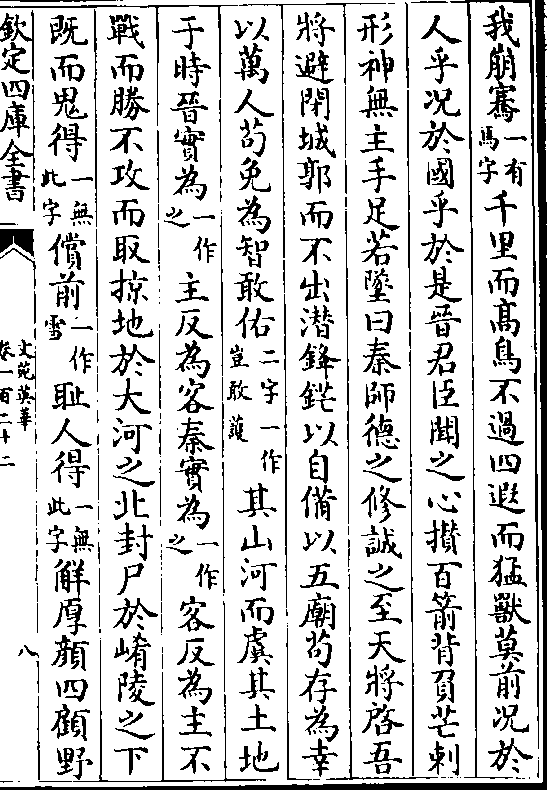 我崩騫一有馬字千里而髙鳥不過四遐而猛獸莫前况於
人乎况於國乎於是晉君臣聞之心攅百箭背負芒刺
形神無主手足若墜曰秦師德之修誠之至天將啓吾
將避閉城郭而不出潜鋒鋩以自備以五廟苟存為幸
以萬人苟免為智敢佑二字一作豈敢護其山河而虞其土地
于時晉實為一作之主反為客秦實為一作之客反為主不
戰而勝不攻而取掠地於大河之北封尸於崤陵之下
既而鬼得一無此字償前一作雪耻人得一無此字觧厚顔四顧野
欽定四庫全書
文苑英華
卷一百二十二
八